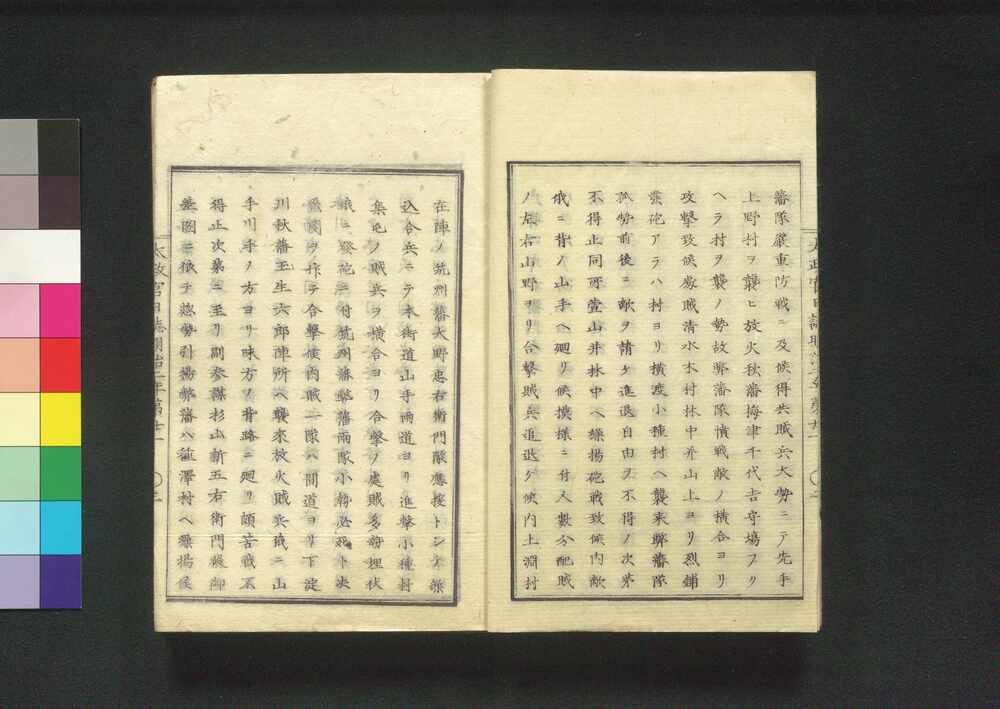 藩隊嚴重防戰ニ及候得共賊兵大勢ニテ先手
上野村ヲ襲ヒ放火秋藩梅津千代吉守場ヲリ
ヘラ村ヲ襲ノ勢故弊藩隊憤戰敵ノ横合ヨリ
攻撃致候處賊清水木村林中并山上ヨリ烈鋪
發砲アラハ村ヨリ横渡小種村ヘ襲来弊藩隊
孤勢前後ニ敵ヲ請ケ進退自由ヲ不得ノ次第
不得止同所堂山并林中ヘ繰揚砲戰致候内敵
俄ニ背ノ山手ヘ廻リ候摸様ニ付人數分配賊
ノ左右山野ヲリ合撃賊兵進退ケ候内上淵村
太政官日誌明治二年第廿一
在陣ノ筑州藩大野忠右衛門隊應接トシテ
込合兵ニテ本街道山手兩道ヨリ進撃小種村
集屯ノ賊兵ヲ横合ヨリ合撃ノ處賊多勢埋伏
俄ニ發砲ニ付筑州藩弊藩兩隊小勢必死ト
ヲ作ラ合撃候内賊二隊ハ間道ヨリ下淀
川秋藩玉生六郎陣所ヘ襲来放火賊兵或ニ山
手川手ノ方ヨリ味方ノ背路ニ廻リ頗苦戰不
得止次第ニ至リ副參謀杉山新五右衛門殿御
差圖ニ依テ惣勢引揚弊藩ハ澤村ヘ操揚候
太政官日誌明治二年第廿一